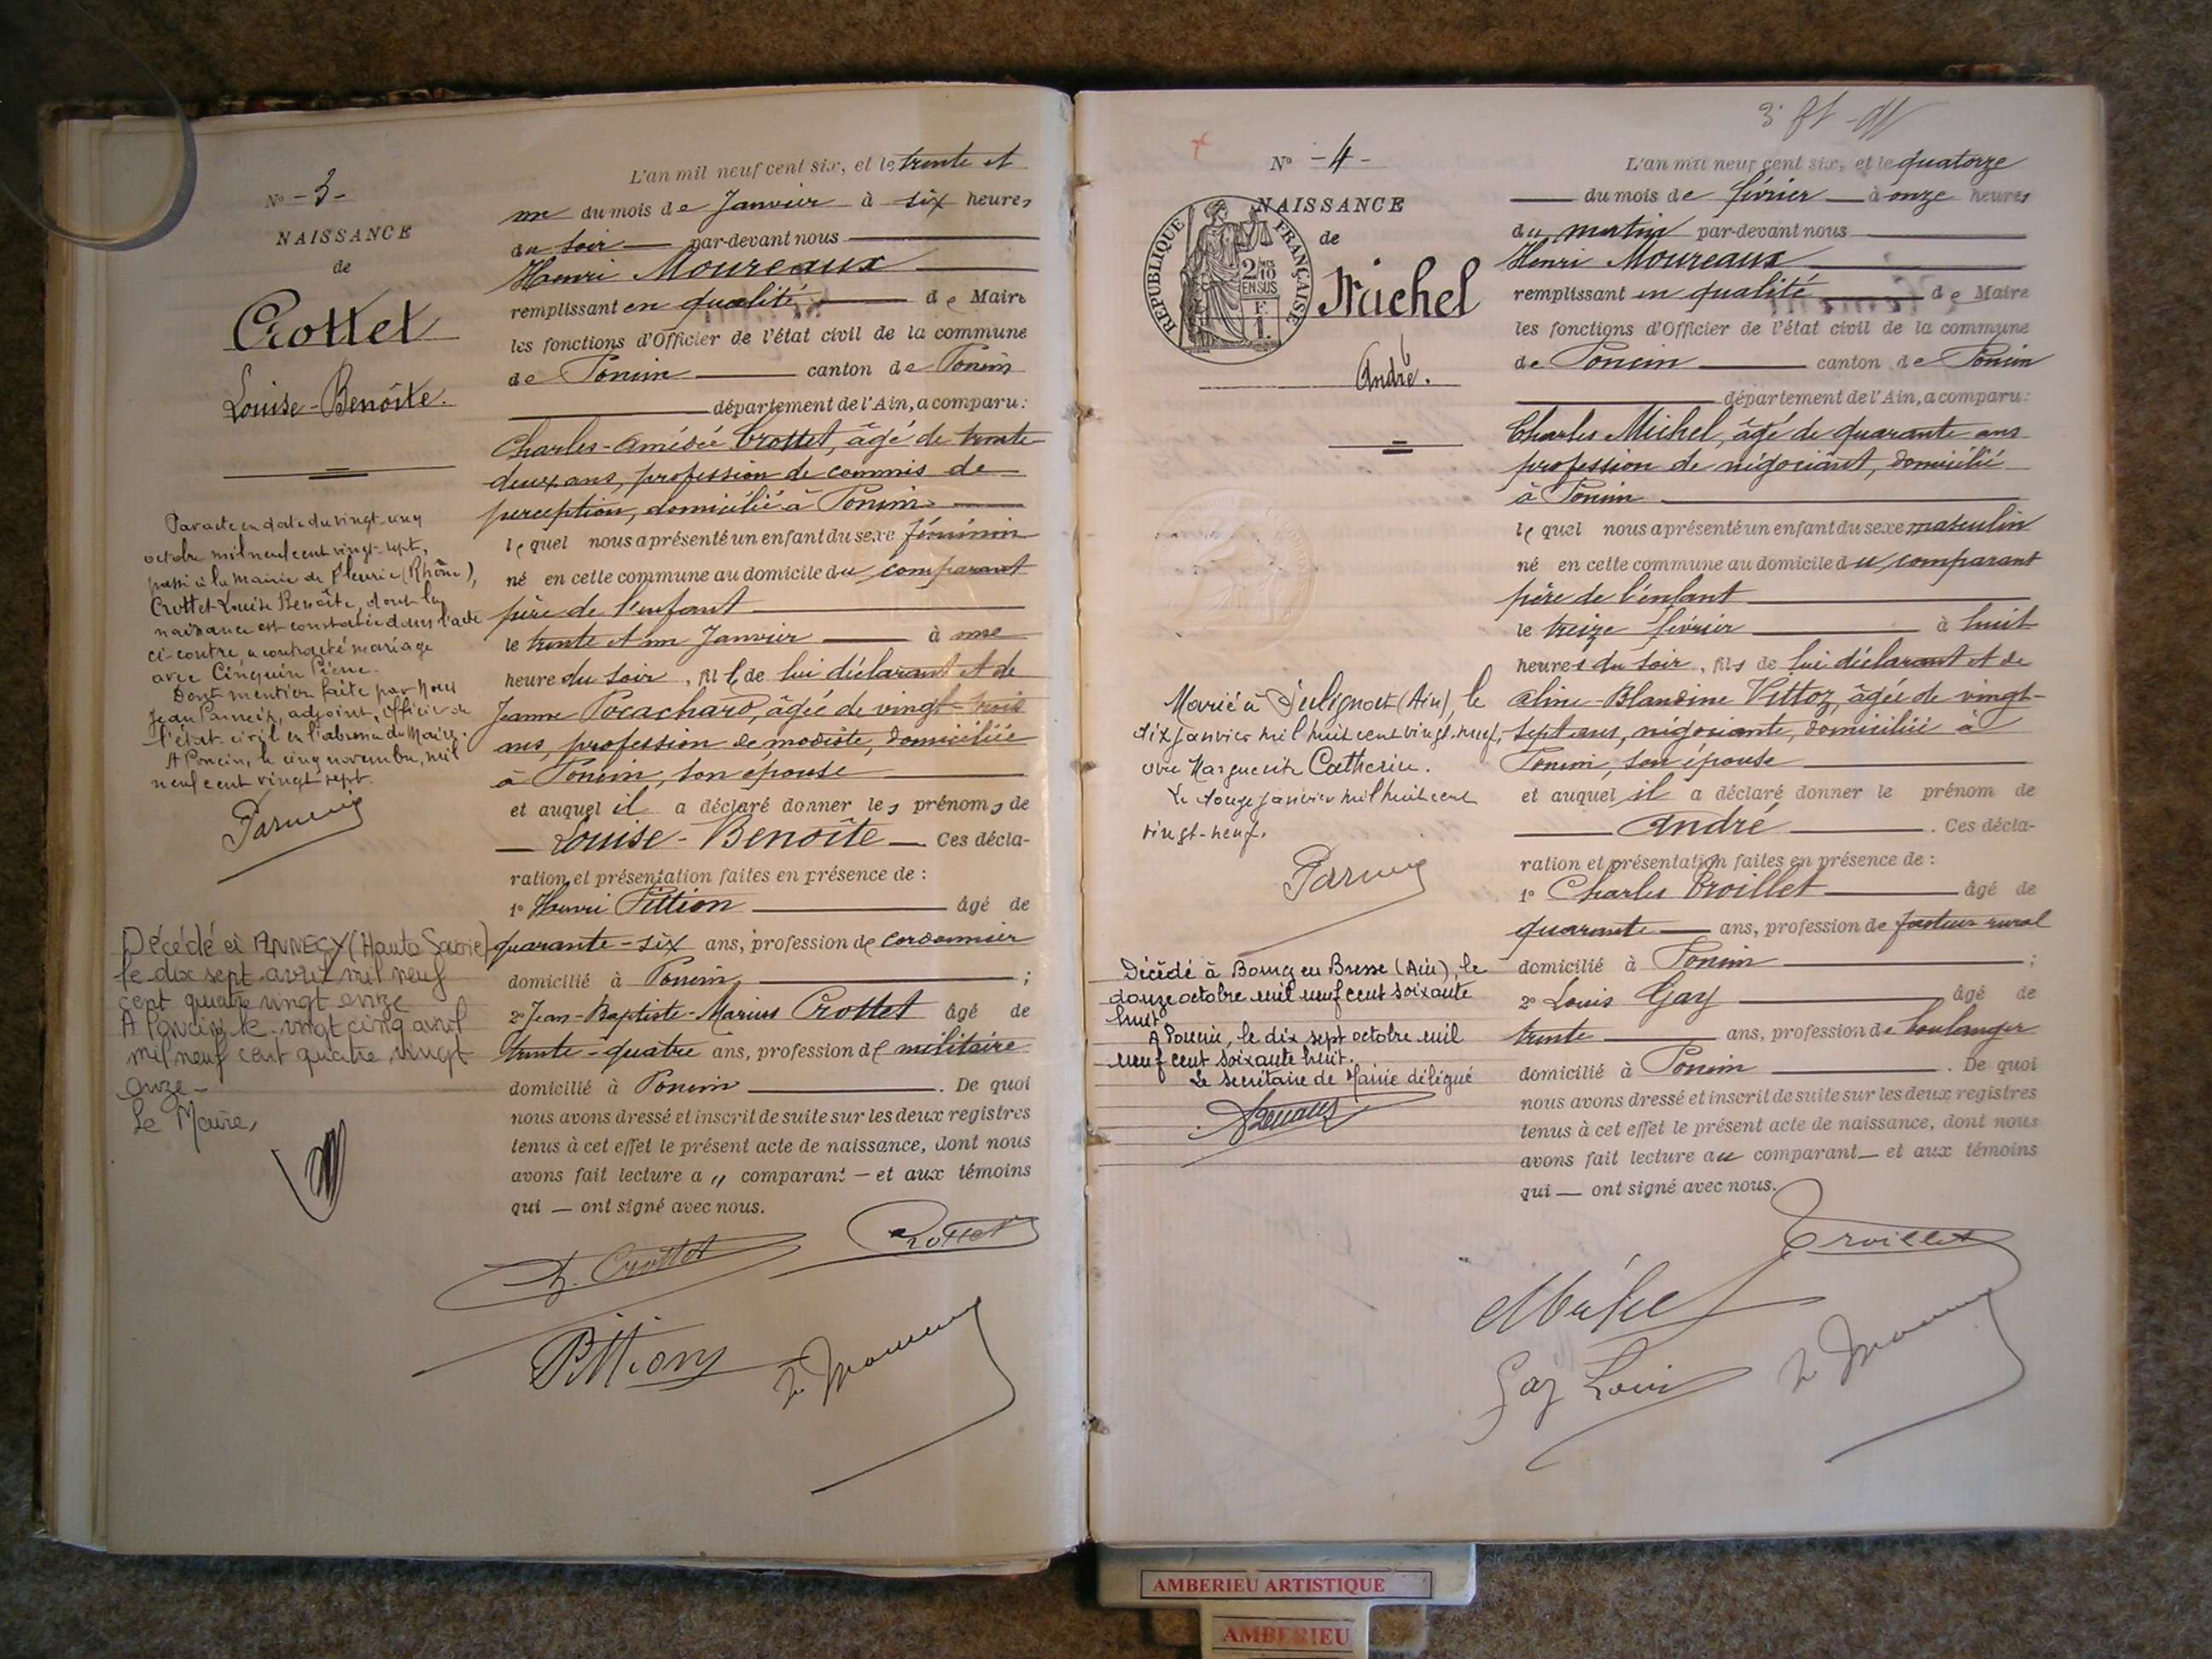 N° - 3 -
NAISSANCE
de
Crottet
Louise-Benoîte.
Par acte en date du vingt-un
octobre mil neuf cent vingt-sept,
passé à la Mairie de Fleurie (Rhône),
Crottet Louise Benoîte, dont la
naissance est constatée dans l'acte
ci-contre, a contracté mariage
avec Cinquin Pierre.
Dont mention faite par Nous
Jean, adjoint, Officier de
l'état-civil en l'absence du Maire.
A Poncin, le cinq novembre, mil
neuf cent vingt sept.
Décédé à ANNECY (Haute Savoie)
le dix sept avril mil neuf
cent quatre vingt onze
A Poncin, le vingt cinq avril
mil neuf cent quatre vingt
onze -
Le Maire,
L'an mil neuf cent six, et le trente et
un du mois de Janvier à six heures
du soir par-devant nous
Henri Moureaux
remplissant en qualité de Maire
les fonctions d'Officier de l'état civil de la commune
de Poncin canton de Poncin
département de l'Ain, a comparu:
Charles-Amédée Crottet, âgé de trente
deux ans, profession de commis de
perception, domicilié à Poncin
lequel nous a présenté un enfant du sexe féminin
né en cette commune au domicile du comparant
père de l'enfant
le trente et un Janvier à une
heure du soir, fille de lui déclarant et de
Jeanne Pocachard, âgée de vingt-trois
ans, profession de modiste, domiciliée
à Poncin, son épouse
et auquel il a déclaré donner les prénoms de
Louise-Benoîte. Ces décla-
ration et présentation faites en présence de :
1° Henri Pittion âgé de
quarante-six ans, profession de cordonnier
domicilié à Poncin ;
2° Jean-Baptiste-Marius Crottet âgé de
trente-quatre ans, profession de militaire
domicilié à Poncin. De quoi
nous avons dressé et inscrit de suite sur les deux registres
tenus à cet effet le présent acte de naissance, dont nous
avons fait lecture a " comparant — et aux témoins
qui — ont signé avec nous.
Ch. Crottet Crottet
Pittion
N° - 4 -
NAISSANCE
de
RÉPUBLIQUE FRANÇAISE
2/10
EN SUS
F.
1.
Michel
André.
Marié à Julignat (Ain), le
dix janvier mil huit cent vingt-neuf,
avec Marguerite Catherin.
Le douze janvier mil huit cent
vingt-neuf.
Décédé à Bourg en Bresse (Ain), le
douze octobre mil neuf cent soixante
huit.
A Poncin, le dix sept octobre mil
neuf cent soixante huit.
Le secrétaire de Mairie délégué
L'an mil neuf cent six, et le quatorze
du mois de février à onze heures
du matin par-devant nous
Henri Moureaux
remplissant en qualité de Maire
les fonctions d'Officier de l'état civil de la commune
de Poncin canton de Poncin
département de l'Ain, a comparu:
Charles Michel, âgé de quarante ans
profession de négociant, domicilié
à Poncin
lequel nous a présenté un enfant du sexe masculin
né en cette commune au domicile du comparant
père de l'enfant
le treize février à huit
heures du soir, fils de lui déclarant et de
Aline-Blandine Vittoz, âgée de vingt-
sept ans, négociante, domiciliée à
Poncin, son épouse
et auquel il a déclaré donner le prénom de
André. Ces décla-
ration et présentation faites en présence de :
1° Charles Croillet âgé de
quarante ans, profession de facteur rural
domicilié à Poncin ;
2° Louis Gay âgé de
trente ans, profession de boulanger
domicilié à Poncin. De quoi
nous avons dressé et inscrit de suite sur les deux registres
tenus à cet effet le présent acte de naissance, dont nous
avons fait lecture au comparant — et aux témoins
qui — ont signé avec nous.
Croillet
Michel
Gay Louis
AMBERIEU ARTISTIQUE
AMBERIEU